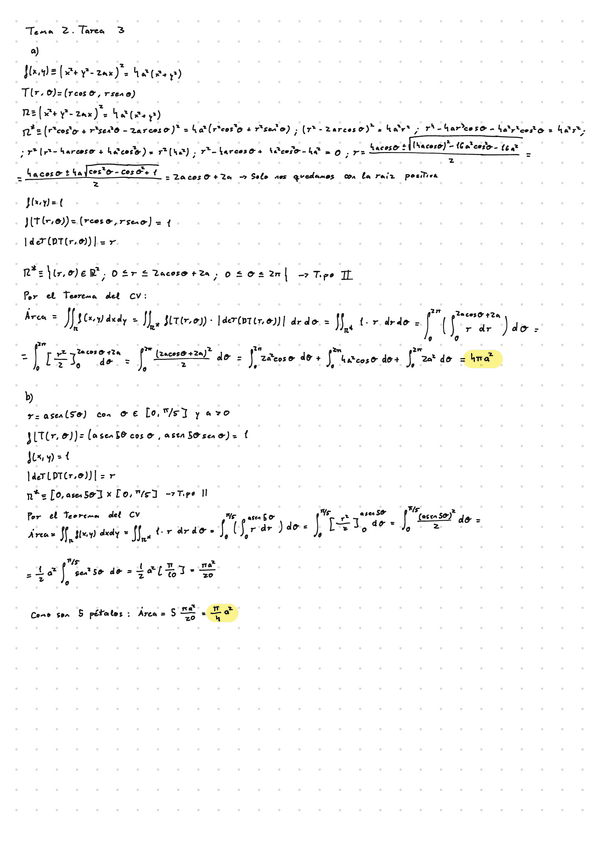 Tema 2. Tarea 3
a)
f(x,y) ≡ (x²+y²-2ax)² = 4a²(x²+y²)
T(r,θ)=(rcosθ, rsenθ)
Ω≡(x²+y²-2ax)² = 4a²(x²+y²)
Ω*≡(r²cos²θ+r²sen²θ-2arcosθ)² = 4a²(r²cos²θ+r²sen²θ) ; (r²-2arcosθ)² = 4a²r² ; r⁴-4ar³cosθ-4a²r²cos²θ = 4a²r² ;
; r²(r²-4arcosθ+4a²cos²θ) = r²(4a²) ; r²-4arcosθ+4a²cos²θ-4a² = 0 ; r = (4acosθ ± √((4acosθ)²-16a²cos²θ-16a²))/2 =
= (4acosθ ± 4a√(cos²θ-cos²θ+1))/2 = 2acosθ+2a → Solo nos quedamos con la raíz positiva
f(x,y)=1
f(T(r,θ))=(rcosθ, rsenθ)=1
|det(DT(r,θ))| = r
Ω* ≡ {(r,θ)∈ℝ² ; 0≤r≤2acosθ+2a ; 0≤θ≤2π} → Tipo II
Por el Teorema del CV:
Área = ∬_Ω f(x,y)dxdy = ∬_Ω* f(T(r,θ))·|det(DT(r,θ))| dr dθ = ∬_Ω* 1·r dr dθ = ∫₀^2π (∫₀^(2acosθ+2a) r dr) dθ =
= ∫₀^2π [r²/2]₀^(2acosθ+2a) dθ = ∫₀^2π (2acosθ+2a)²/2 dθ = ∫₀^2π 2a²cos²θ dθ + ∫₀^2π 4a²cosθ dθ + ∫₀^2π 2a² dθ = 4πa²
b)
r=asen(5θ) con θ∈[0,π/5] y a>0
f(T(r,θ))=(asen5θcosθ, asen5θsenθ)=1
f(x,y)=1
|det(DT(r,θ))| = r
Ω* ≡ [0,asen5θ]×[0,π/5] → Tipo II
Por el Teorema del CV
Área = ∬_Ω f(x,y)dxdy = ∬_Ω* 1·r dr dθ = ∫₀^(π/5) (∫₀^(asen5θ) r dr) dθ = ∫₀^(π/5) [r²/2]₀^(asen5θ) dθ = ∫₀^(π/5) (asen5θ)²/2 dθ =
= 1/2 a² ∫₀^(π/5) sen²5θ dθ = 1/2 a² [π/10] = πa²/20
Como son 5 pétalos: Área = 5 πa²/20 = π/4 a²